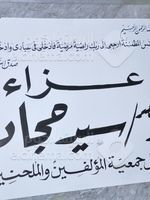 الرحمن الرحيم
المطمئنة ارجعي إلى ربك راضية مرضية فادخلي في عبادي وادخلي
عزاء
سيد حجاب
جمعية المؤلفين والملحنين